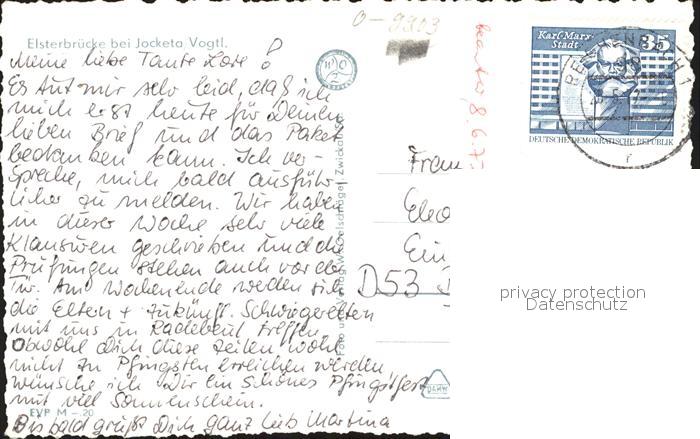 Elsterbrücke bei Jocketa Vogtl.
Meine liebe Tante Lore!
Es tut mir sehr leid, daß ich
mich erst heute für Deinen
lieben Brief und das Paket
bedanken kann. Ich ver-
spreche, mich bald ausführ-
licher zu melden. Wir haben
in dieser Woche sehr viele
Klausuren geschrieben und die
Prüfungen stehen auch vor der
Tür. Am Wochenende werden sich
die Eltern + zukünft. Schwiegereltern
mit uns in Radebeul treffen
Obwohl Dich diese Zeilen wohl
nicht zu Pfingsten erreichen werden
wünsche ich Dir ein schönes Pfingstfest
mit viel Sonnenschein.
EVP M -.20
Bis bald grüßt Dich ganz lieb Martina
0-9903
8.6.7
Karl-Marx-
Stadt
35
DEUTSCHE DEMOKRATISCHE REPUBLIK
Frau
Ein
D53
privacy protection
Datenschutz